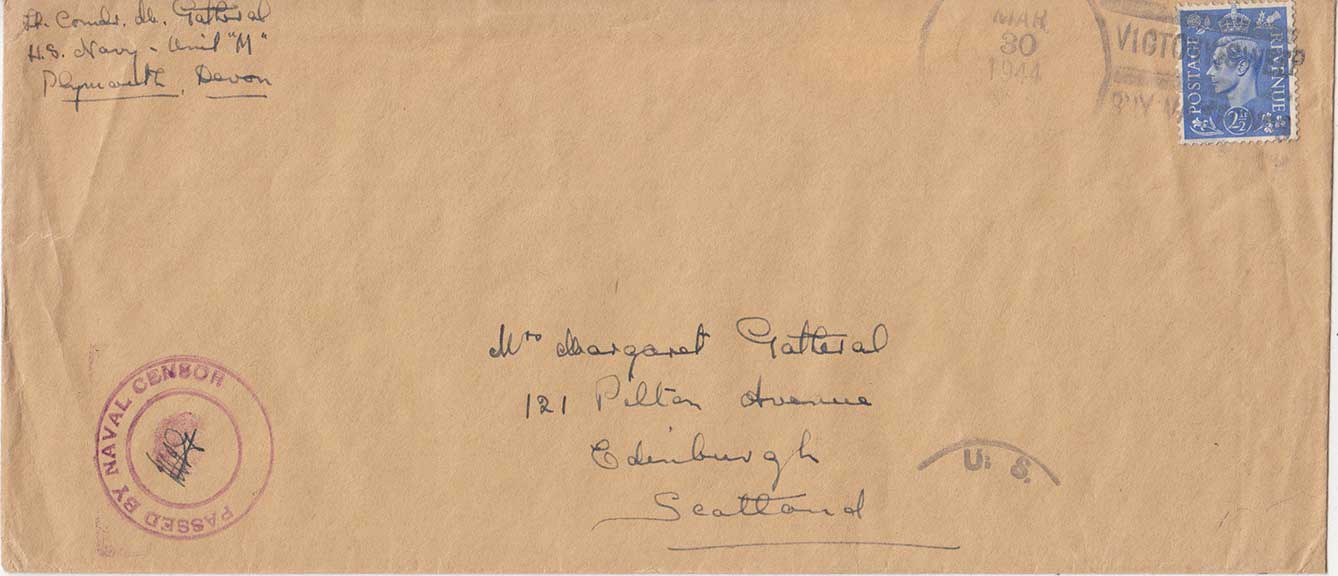 Lt. Comdr. M. Gatheral
U.S. Navy - Unit "M"
Plymouth, Devon
MAR
30
1944
BUY
POSTAGE REVENUE
2½
Mrs Margaret Gatheral
121 Pilton Avenue
Edinburgh
Scotland
U. S.
PASSED BY NAVAL CENSOR